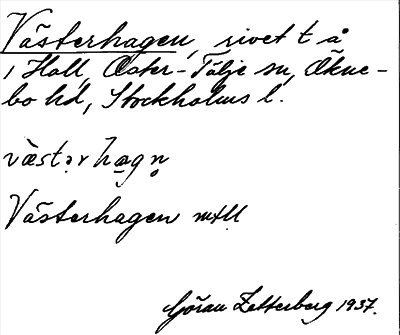 Västerhagen, rivet t å
i Hall, Öster-Tälje sn, Økne-
bo hd, Stockholms l.
væstərhagn̥
Västerhagen mtll
Göran Zetterberg 1937.